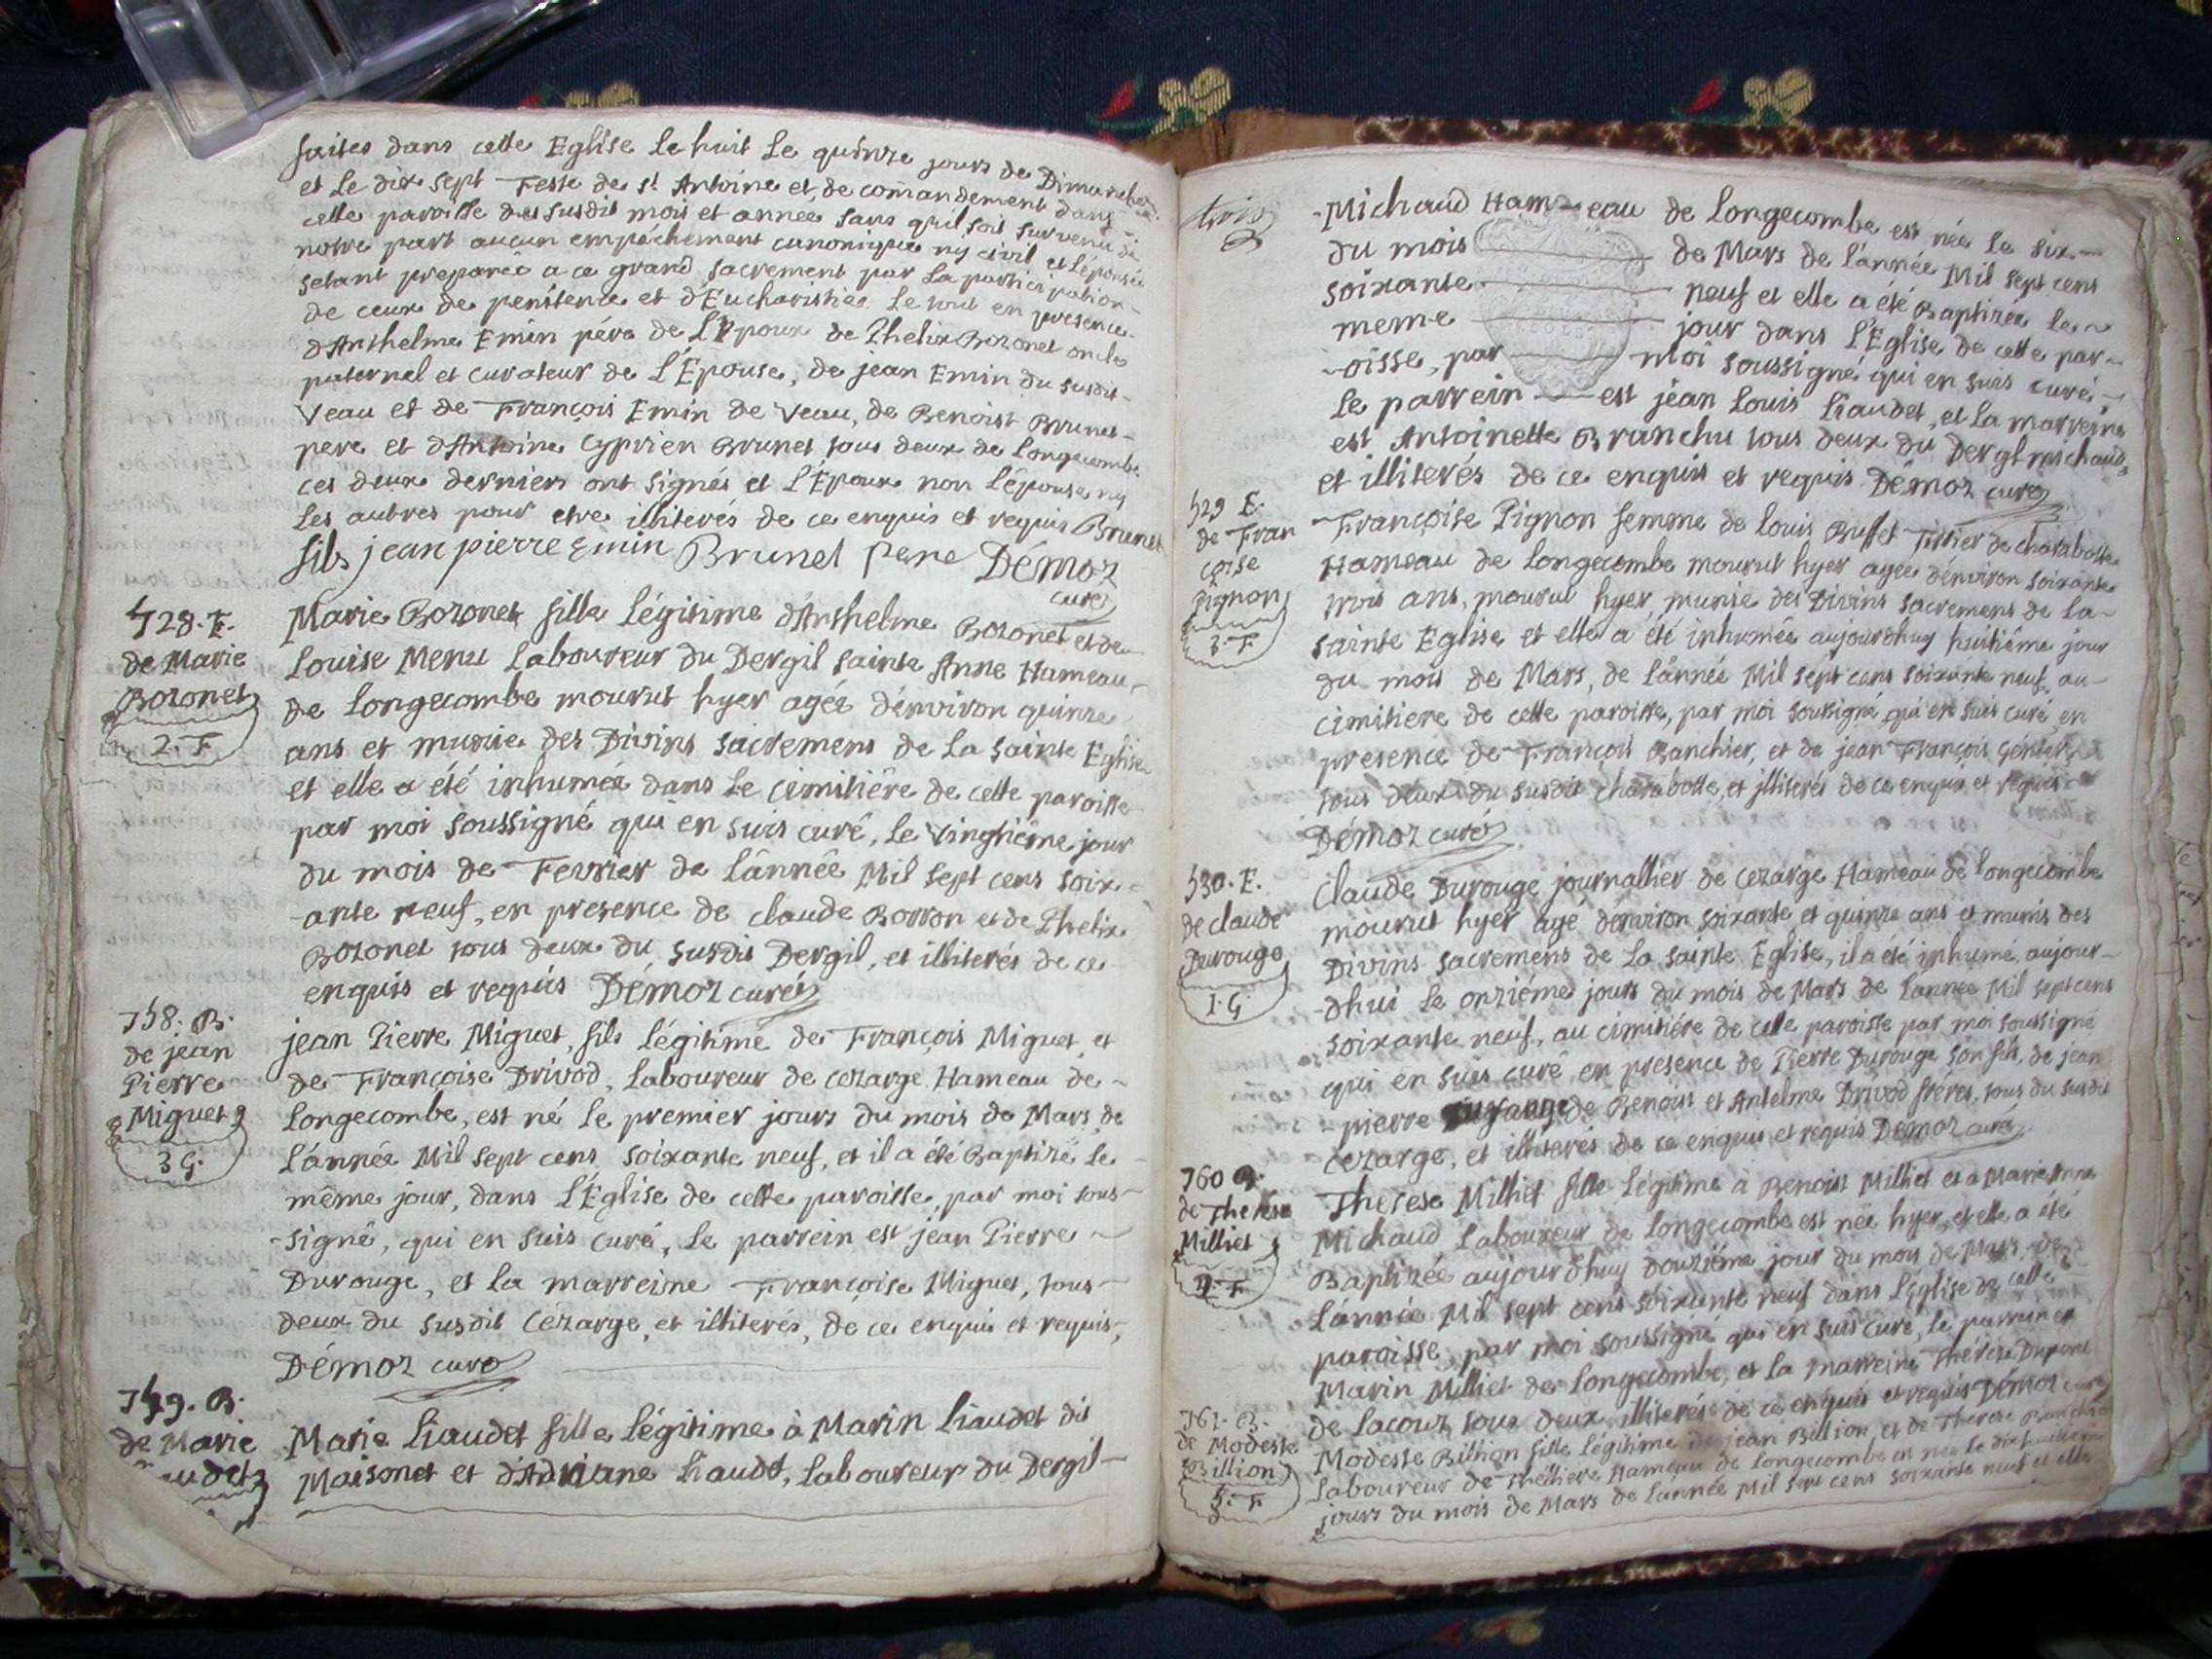 faites dans cette Eglise le huit le quinze jours de Dimanches
et le dix sept Feste de st Antoine et de comandement dans
cette paroisse des susdits mois et année sans quil soit survenu de
notre part aucun empêchement canonique ny civil et l'épouse
setant preparée a ce grand sacrement par la participation
de ceux de penitence et d'Eucharistie. le tout en presence
d'Anthelme Emin pére de L'Epoux de Phelix Bozonet oncle
paternel et curateur de L'Épouse, de jean Emin du susdit
Veau et de François Emin de Veau, de Benoist Brunet
pere et d'Antoine Cyprien Brunet tous deux de Longecombe
ces deux derniers ont signés et L'Époux non L'épouse ny
les autres pour etre illiterés de ce enquis et requis Brunet
fils jean pierre Emin Brunet pere Démoz
curé
528. E.
de Marie
Bozonet
2. F
Marie Bozonet fille légitime d'Anthelme Bozonet et de
Louise Menu Laboureur du Dergil sainte Anne Hameau
de Longecombe mourut hyer agée dénviron quinze
ans et munie des Divins sacremens de la sainte Eglise
et elle a été inhumée dans le cimitiére de cette paroisse
par moi soussigné qui en suis curé, le vingtiéme jour
du mois de Fevrier de lánnée Mil sept cens soix-
ante neuf, en presence de claude Borron et de Phelix
Bozonet tous deux du susdit Dergil, et illiterés de ce
enquis et requis Démoz curé
758. B.
de jean
Pierre
Miguet
3 G.
jean Pierre Miguet, fils légitime de François Miguet, et
de Françoise Drivod, laboureur de cezarge Hameau de
Longecombe, est né le premier jours du mois de Mars de
Lánnée Mil sept cens soixante neuf, et il a été Baptizé le
même jour, dans L'Église de cette paroisse, par moi sous-
signé, qui en suis curé, le parrein est jean Pierre
Durouge, et la marreine Françoise Miguet, tous
deux du susdit Cézarge, et illiterés, de ce enquis et requis,
Démoz curé
759. B.
de Marie
Marie Liaudet fille légitime à Marin Liaudet dit
Maisonet et d'Adriane Liaudet, laboureur du Dergil
trois
Michaud Ham-eau de Longecombe est née le six
du mois de Mars de lánnée Mil sept cens
soixante neuf et elle a été Baptizée le
meme jour dans L'Eglise de cette par-
oisse, par moi soussigné qui en suis curé,
le parrein est jean Louis Liaudet, et la marreine
est Antoinette Branchu tous deux du Dergl michaud
et illiterés de ce enquis et requis Démoz curé
529 E.
de Fran
çoise
Pignon
3. F
Françoise Pignon femme de Louis Buffet Tissier de charabotte
Hameau de Longecombe mourut hyer agée dénviron soixante
trois ans, mourut hyer munie des Divins sacremens de la
sainte Eglise et elle a été inhumée aujourdhuy huitiéme jour
du mois de Mars, de lánnée Mil sept cens soixante neuf, au
cimitiere de cette paroisse, par moi soussigné qui en suis curé en
presence de François Banchier, et de jean François
tous deux du susdit charabotte, et illiterés de ce enquis et requis
Démoz curé
530. E.
de claude
Durouge
1. G
Claude Durouge journallier de cezarge Hameau de Longecombe
mourut hyer agé dénviron soixante et quinze ans et munis des
Divins sacremens de la sainte Eglise, il a été inhumé aujour-
dhui le onziéme jours du mois de Mars de lannée Mil sept cens
soixante neuf, au cimitiére de cette paroisse par moi soussigné
qui en suis curé en presence de Pierre Durouge son fils, de jean
pierre de Benoist et Antelme Drivod fréres, tous du susdit
cezarge, et illiterés de ce enquis et requis Démoz curé
760 B.
de Therése
Milliet
4. F
Therese Milliet fille légitime à Benoist Milliet et à Marie Anne
Michaud Laboureur de Longecombe est née hyer, et elle a été
Baptizée aujourdhuy douziéme jour du mois de Mars de
Lánnée Mil sept cens soixante neuf dans L'église de cette
paroisse, par moi soussigné qui en suis curé, le parrein est
Marin Milliet de Longecombe, et la marreine Thérèse Dupont
de Lacoux, tous deux illiterés de ce enquis et requis Démoz curé
761. B.
de Modeste
Billion
5. F
Modeste Billion fille légitime de jean Billion, et de Therese
Laboureur de Hameau de Longecombe est née le
jours du mois de Mars de lannée Mil sept cens soixante neuf et elle